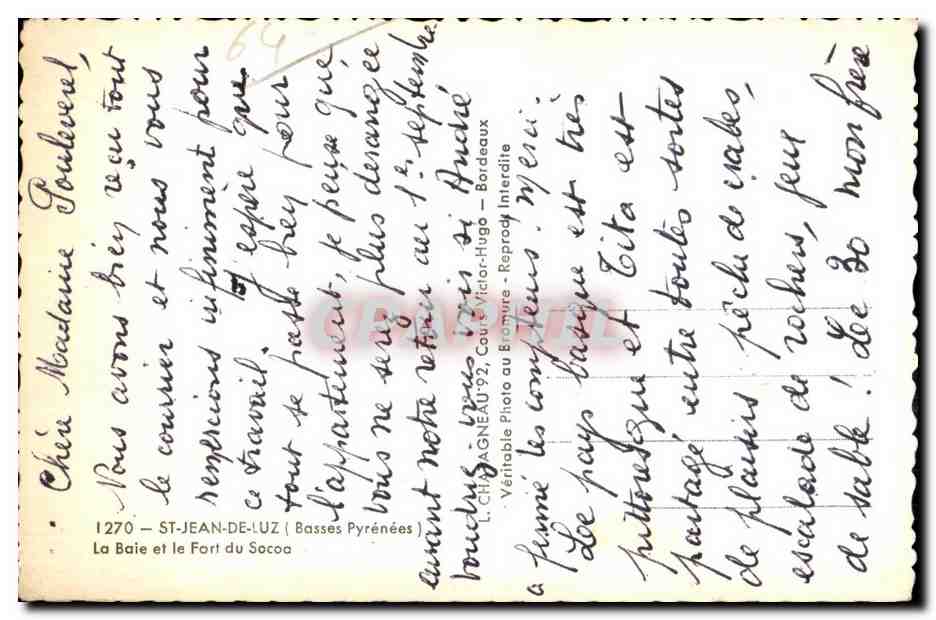 64
Chère Madame Pouleverel,
Nous avons bien reçu tout
le courrier et nous vous
remercions infiniment pour
ce travail. J'espère que
tout se passe bien pour
l'appartement, je pense que
vous ne serez plus dérangée
avant notre retour au 1er septembre.
voudriez-vous voir si André
a fermé les compteurs. Merci.
Le pays basque est très
pittoresque et Tita est
partagé entre toutes sortes
de plaisirs, pêche de crabes,
escalade de rochers, jeux
de sable! Le 30 mon frère
1270 — ST-JEAN-DE-LUZ (Basses Pyrénées)
La Baie et le Fort du Socoa
L. CHATAGNEAU 92, Cours Victor-Hugo — Bordeaux
Véritable Photo au Bromure - Reprod. Interdite